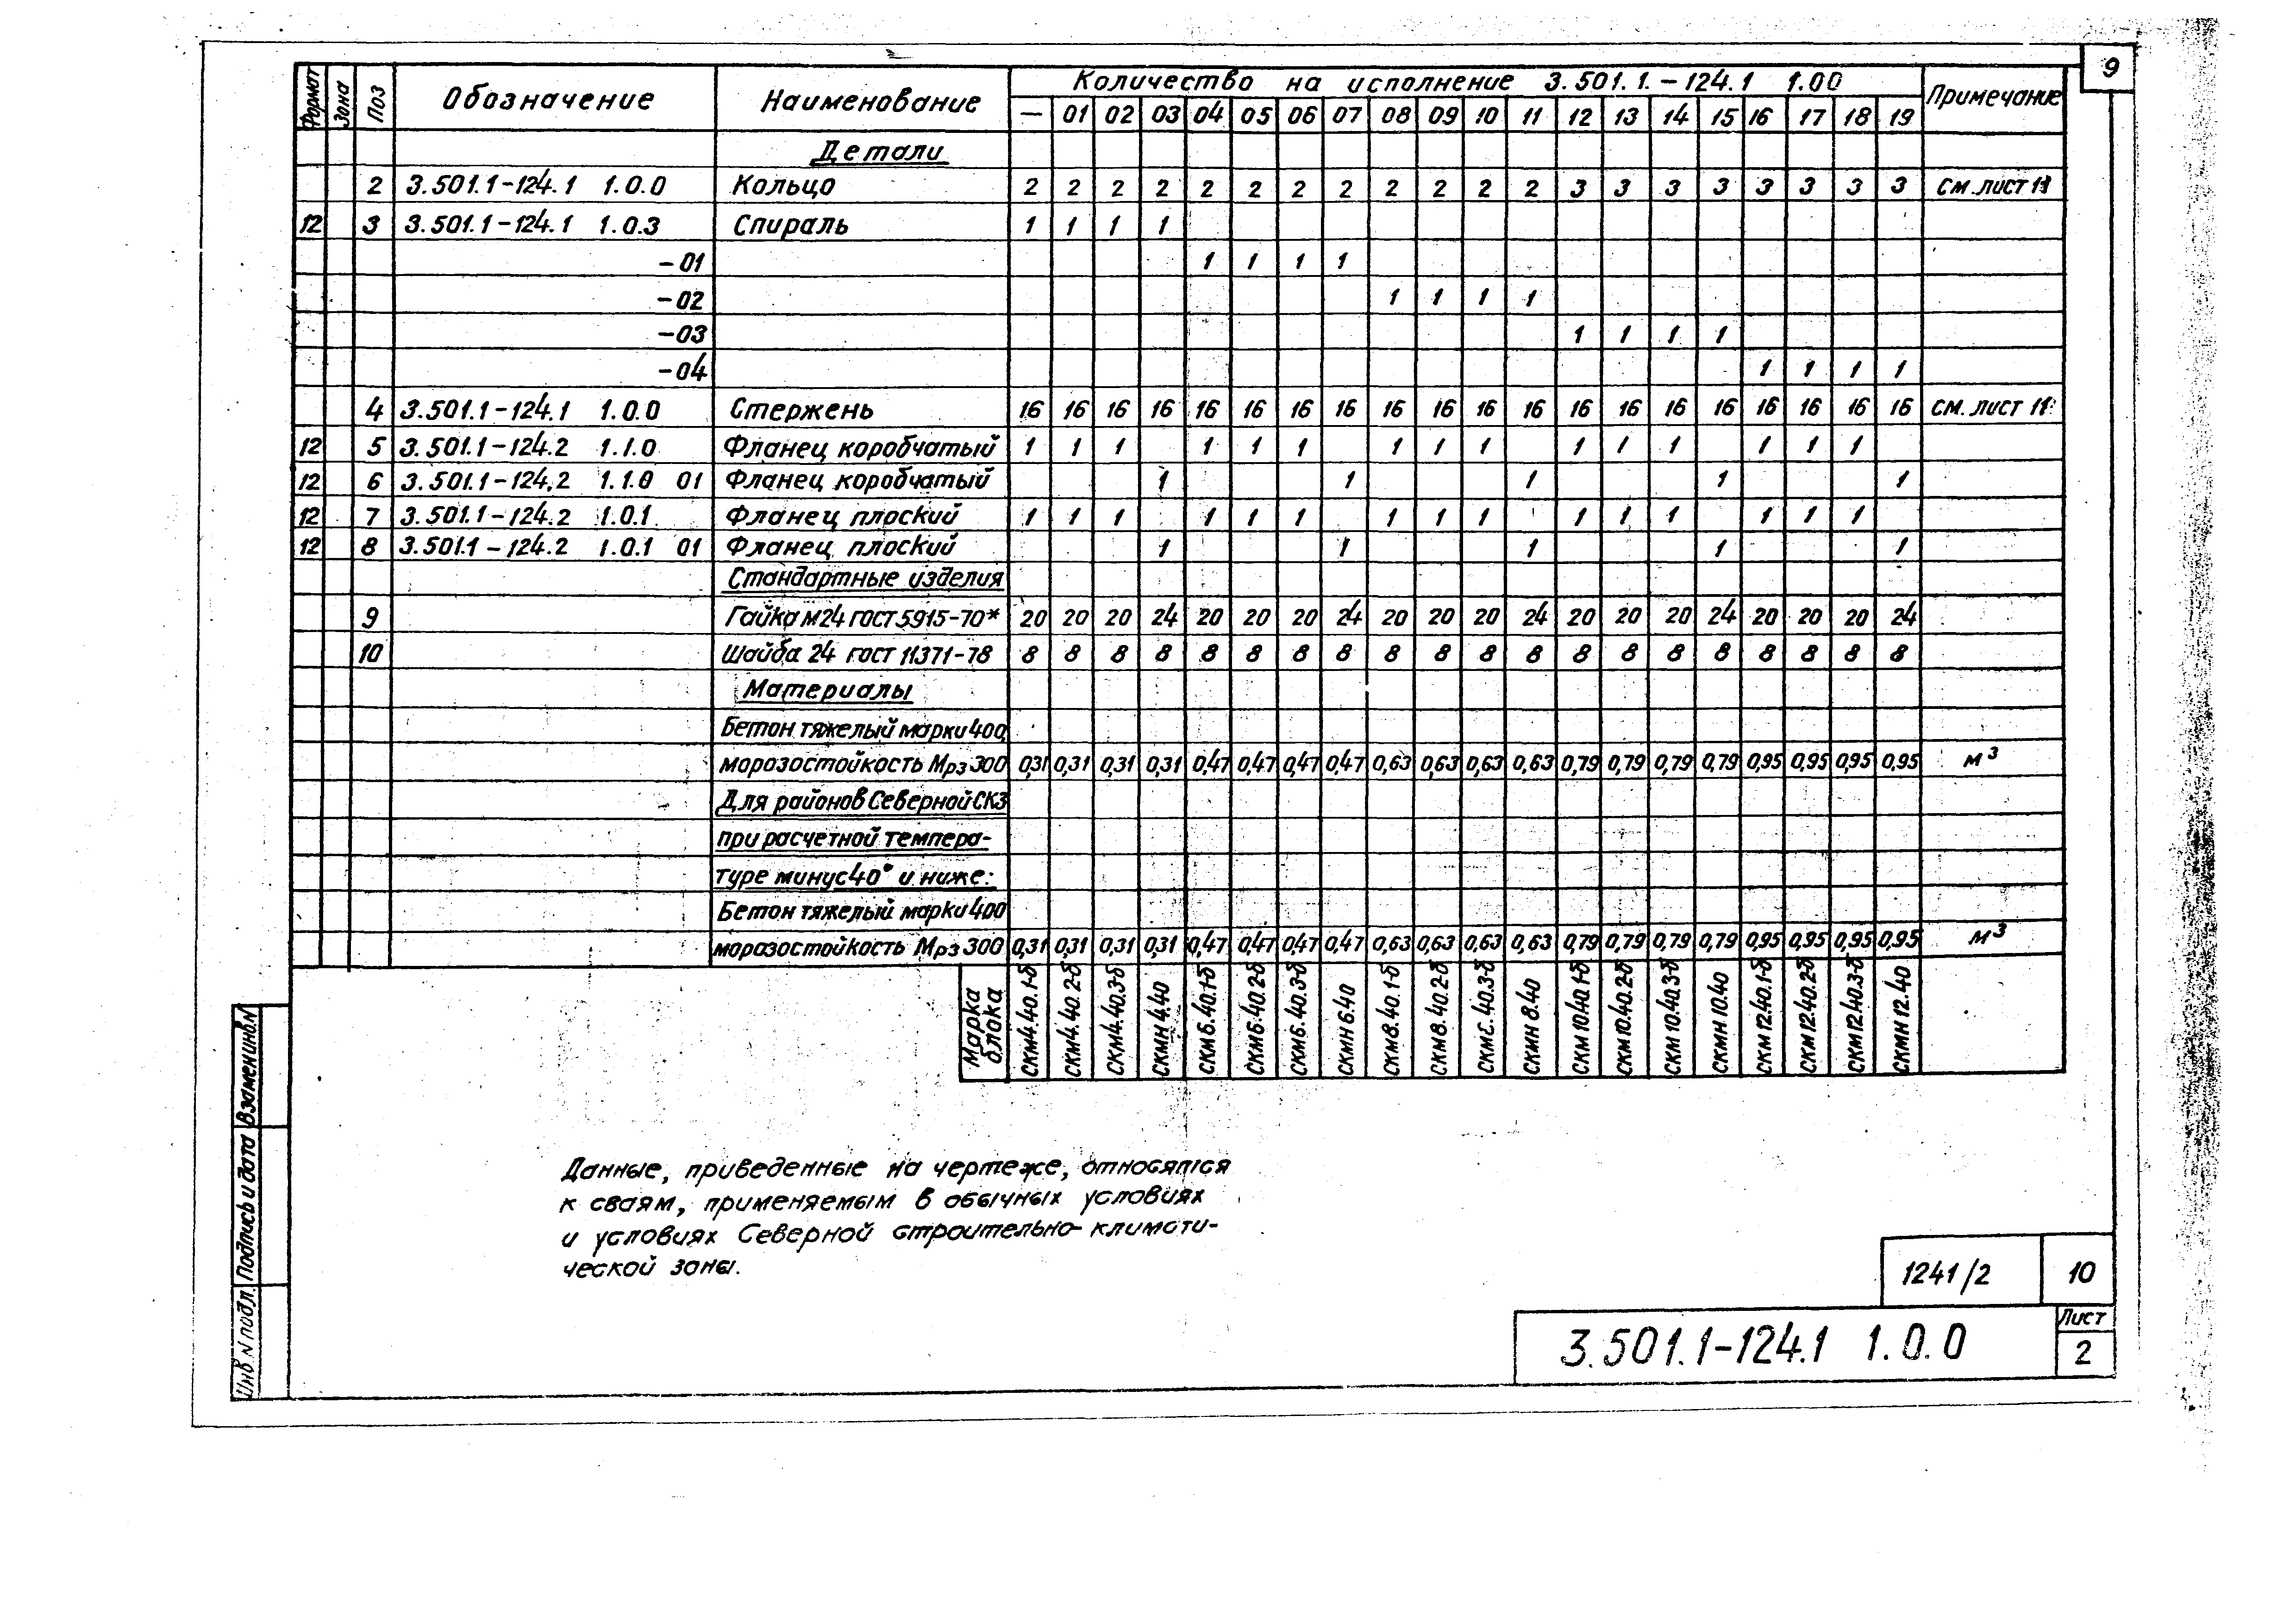 9
Формат Зона Поз Обозначение Наименование Количество на исполнение 3.501.1.-124.1 1.00 Примечание
— 01 02 03 04 05 06 07 08 09 10 11 12 13 14 15 16 17 18 19
Детали
2 3.501.1-124.1 1.0.0 Кольцо 2 2 2 2 2 2 2 2 2 2 2 2 3 3 3 3 3 3 3 3 См. лист 11
12 3 3.501.1-124.1 1.0.3 Спираль 1 1 1 1
-01 1 1 1 1
-02 1 1 1 1
-03 1 1 1 1
-04 1 1 1 1
4 3.501.1-124.1 1.0.0 Стержень 16 16 16 16 16 16 16 16 16 16 16 16 16 16 16 16 16 16 16 16 см. лист 11
12 5 3.501.1-124.2 1.1.0 Фланец коробчатый 1 1 1 1 1 1 1 1 1 1 1 1 1 1 1
12 6 3.501.1-124.2 1.1.0 01 Фланец коробчатый 1 1 1 1 1
12 7 3.501.1-124.2 1.0.1 Фланец плоский 1 1 1 1 1 1 1 1 1 1 1 1 1 1 1
12 8 3.501.1-124.2 1.0.1 01 Фланец плоский 1 1 1 1 1
Стандартные изделия
9 Гайка М24 ГОСТ 5915-70* 20 20 20 24 20 20 20 24 20 20 20 24 20 20 20 24 20 20 20 24
10 Шайба 24 ГОСТ 11371-78 8 8 8 8 8 8 8 8 8 8 8 8 8 8 8 8 8 8 8 8
Материалы
Бетон тяжелый марки 400,
морозостойкость Мрз 300 0,31 0,31 0,31 0,31 0,47 0,47 0,47 0,47 0,63 0,63 0,63 0,63 0,79 0,79 0,79 0,79 0,95 0,95 0,95 0,95 м³
Для районов Северной СКЗ
при расчетной темпера-
туре минус 40° и ниже:
Бетон тяжелый марки 400
морозостойкость Мрз 300 0,31 0,31 0,31 0,31 0,47 0,47 0,47 0,47 0,63 0,63 0,63 0,63 0,79 0,79 0,79 0,79 0,95 0,95 0,95 0,95 м³
Марка блока СКМ4.40.1-б СКМ4.40.2-б СКМ4.40.3-б СКМН 4.40 СКМ6.40.1-б СКМ6.40.2-б СКМ6.40.3-б СКМН 6.40 СКМ8.40.1-б СКМ8.40.2-б 40.3-б СКМН 8.40 СКМ 10.40.1-б СКМ 10.40.2-б СКМ 10.40.3-б СКМН 10.40 СКМ 12.40.1-б СКМ 12.40.2-б СКМ 12.40.3-б СКМН 12.40
Данные, приведенные на чертеже, относятся
к сваям, применяемым в обычных условиях
и условиях Северной строительно-климати-
ческой зоны.
Взамен инв.N
Подпись и дата
Инв. N подл.
1241/2 10
3.501.1-124.1 1.0.0
Лист
2